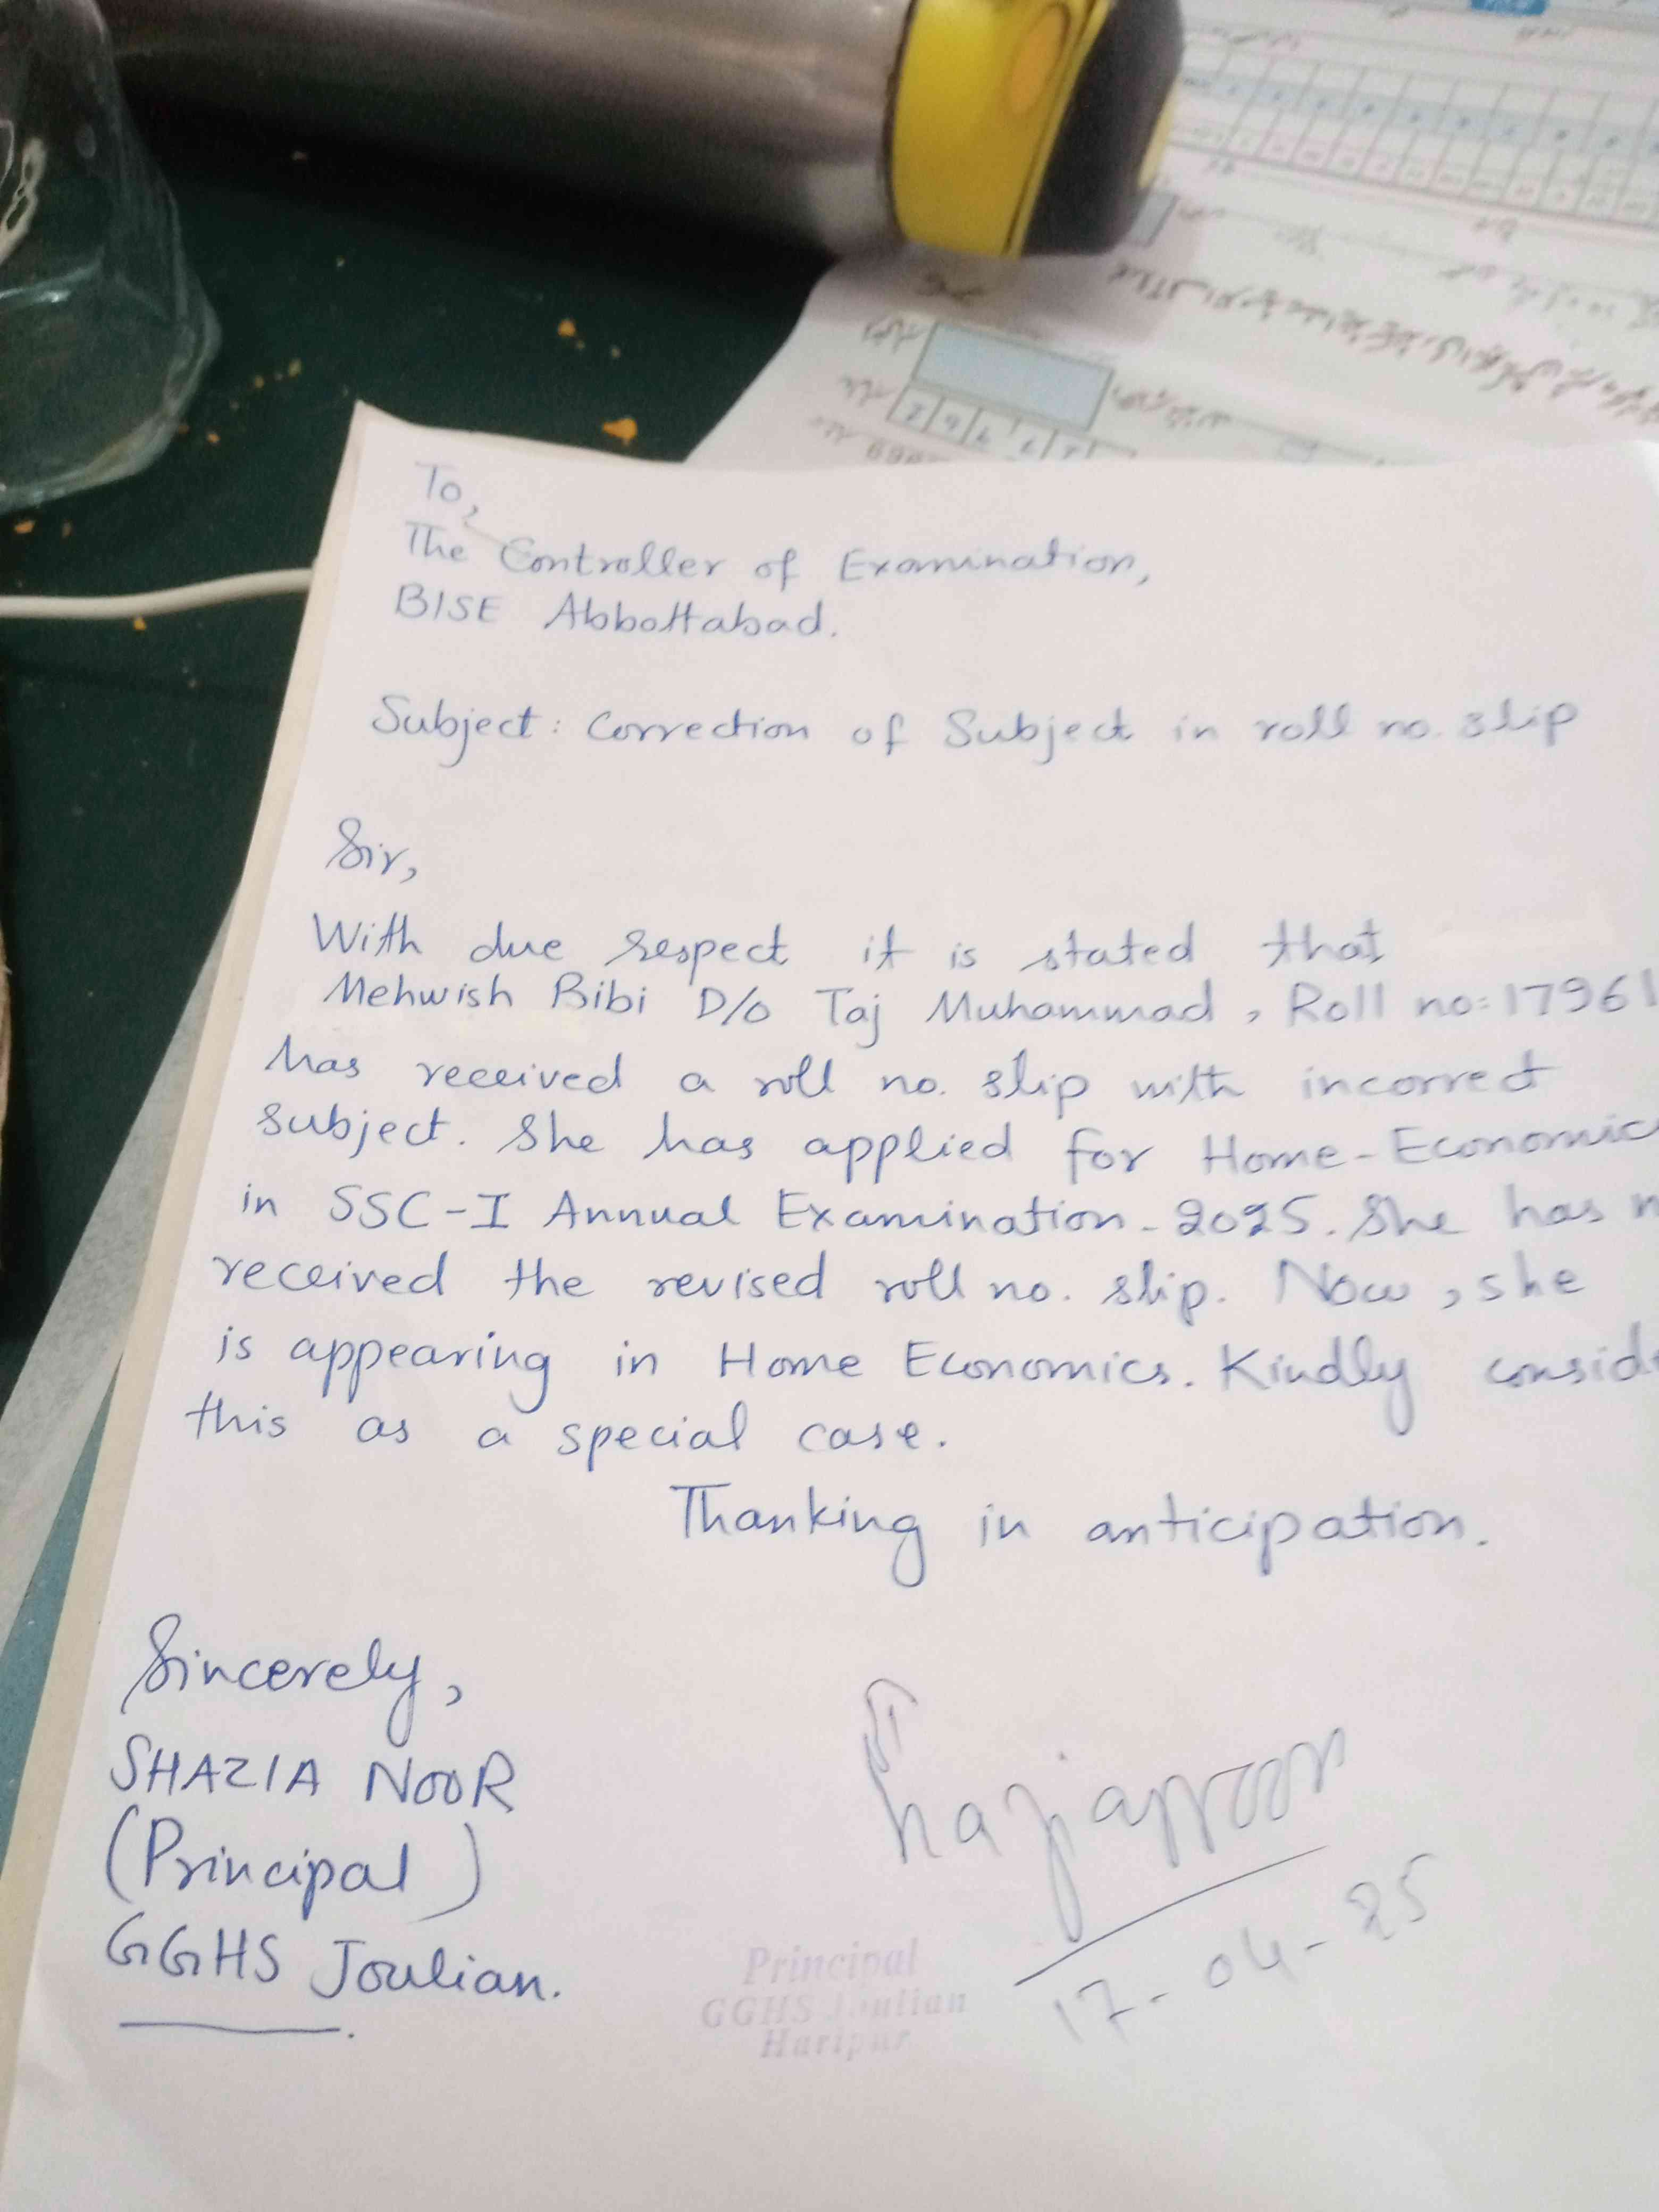 To,
The Controller of Examination,
BISE Abbottabad.
Subject: Correction of Subject in roll no. slip
Sir,
With due respect it is stated that
Mehwish Bibi D/o Taj Muhammad, Roll no: 17961
has received a roll no. slip with incorrect
subject. She has applied for Home-Economic
in SSC-I Annual Examination-2025. She has n
received the revised roll no. slip. Now, she
is appearing in Home Economics. Kindly consid
this as a special case.
Thanking in anticipation.
Sincerely,
SHAZIA NOOR
(Principal)
GGHS Joulian.
17-04-25
Principal
GGHS Joulian
Haripur